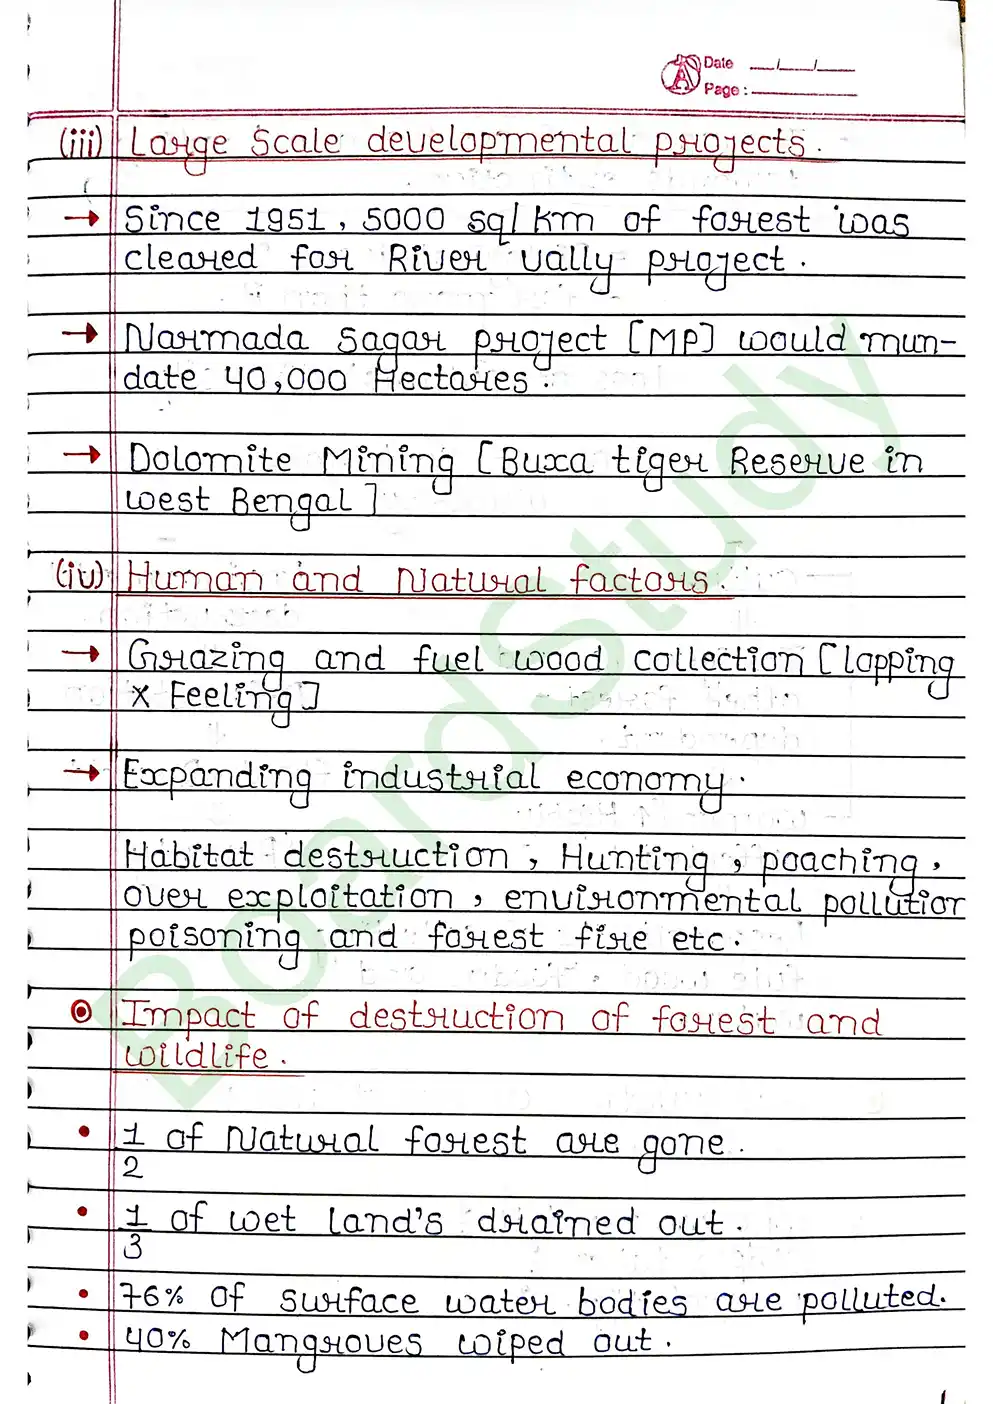 Date __/__/__
Page : ________
(iii) Large Scale developmental projects.
→ Since 1951, 5000 sq/km of forest was
cleared for River vally project.
→ Narmada Sagar project [MP] would mun-
date 40,000 Hectares.
→ Dolomite Mining [Buxa tiger Reserve in
west Bengal]
(iv) Human and Natural factors.
→ Grazing and fuel wood collection [lopping
x Feeling]
→ Expanding industrial economy.
Habitat destruction, Hunting, poaching,
over exploitation, environmental pollution
poisoning and forest fire etc.
Impact of destruction of forest and
wildlife.
• 1/2 of Natural forest are gone.
• 1/3 of wet land's drained out.
• 76% of surface water bodies are polluted.
• 40% Mangroves wiped out.
BoardStudy